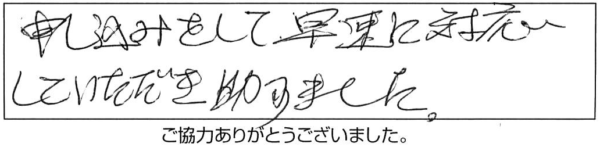 申し込みをして早速に対応
していただき助かりました。
ご協力ありがとうございました。